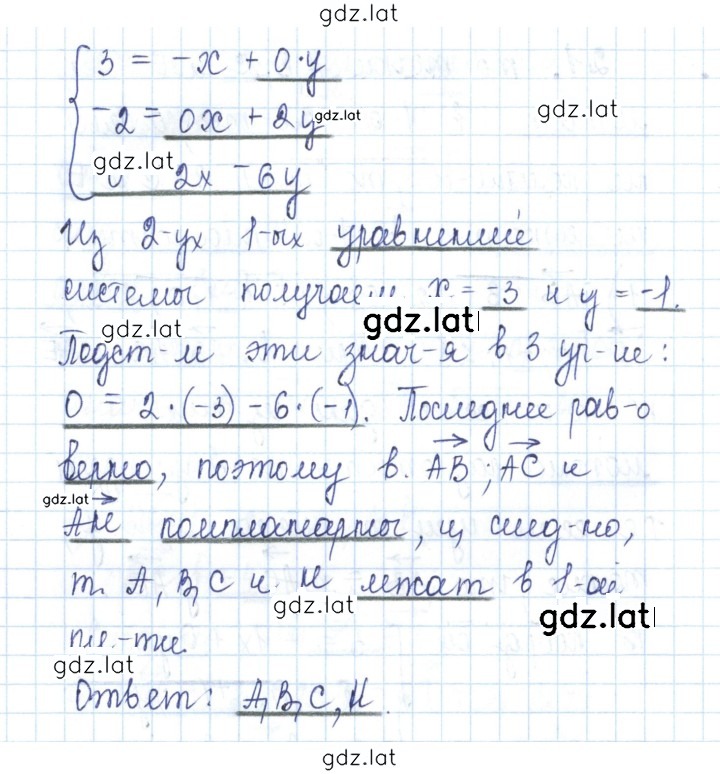 gdz.lat
3 = -x + 0·y
-2 = 0x + 2y gdz.lat
gdz.lat
gdz.lat
2x - 6y
Из 2-ух 1-ых уравнений
системы получае... x = -3 и y = -1.
gdz.lat gdz.lat
Подст-м эти знач-я в 3 ур-ие:
0 = 2·(-3) - 6·(-1). Последнее рав-о
верно, поэтому в. AB; AC и
gdz.lat
компланарны, и, след-но,
т. A, B, C и лежат в 1-ой
gdz.lat gdz.lat
пл.-ти.
gdz.lat
Ответ: A, B, C,
gdz.lat